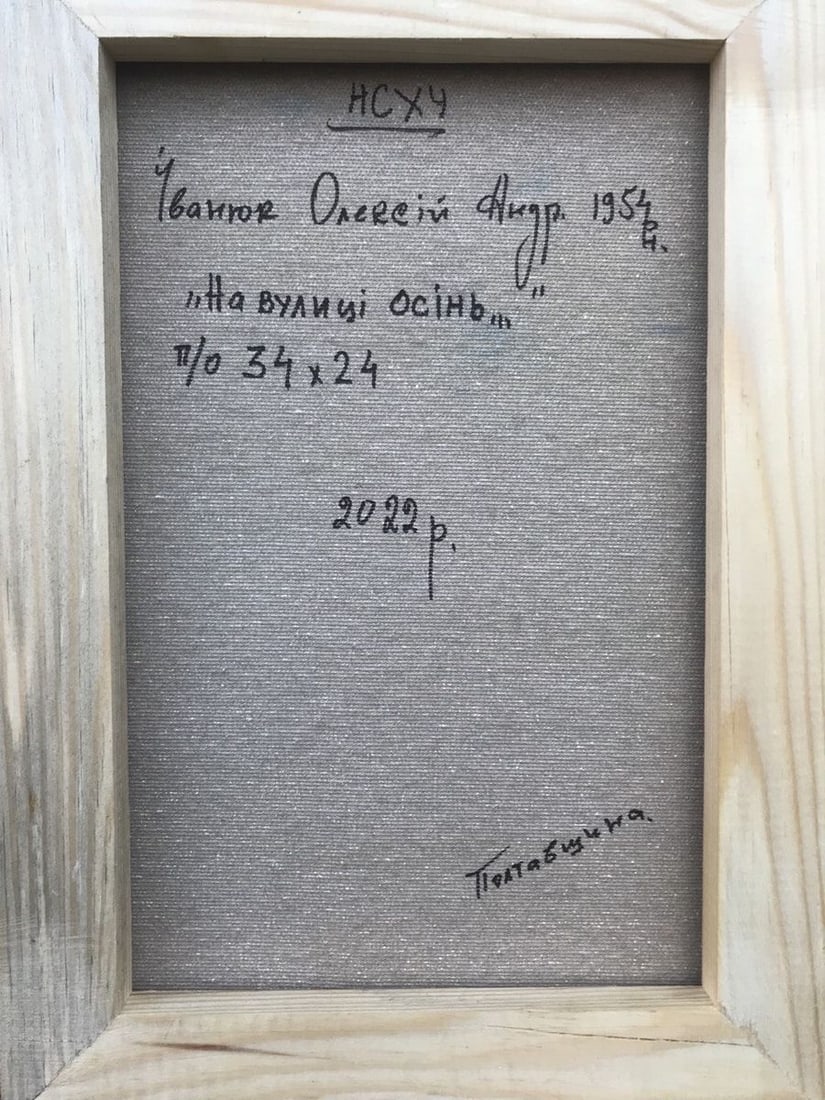 НСХУ
Іванюк Олексій Андр. 1954 р.н.
„На вулиці осінь..."
п/о 34 х 24
2022 р.
Полтавщина.